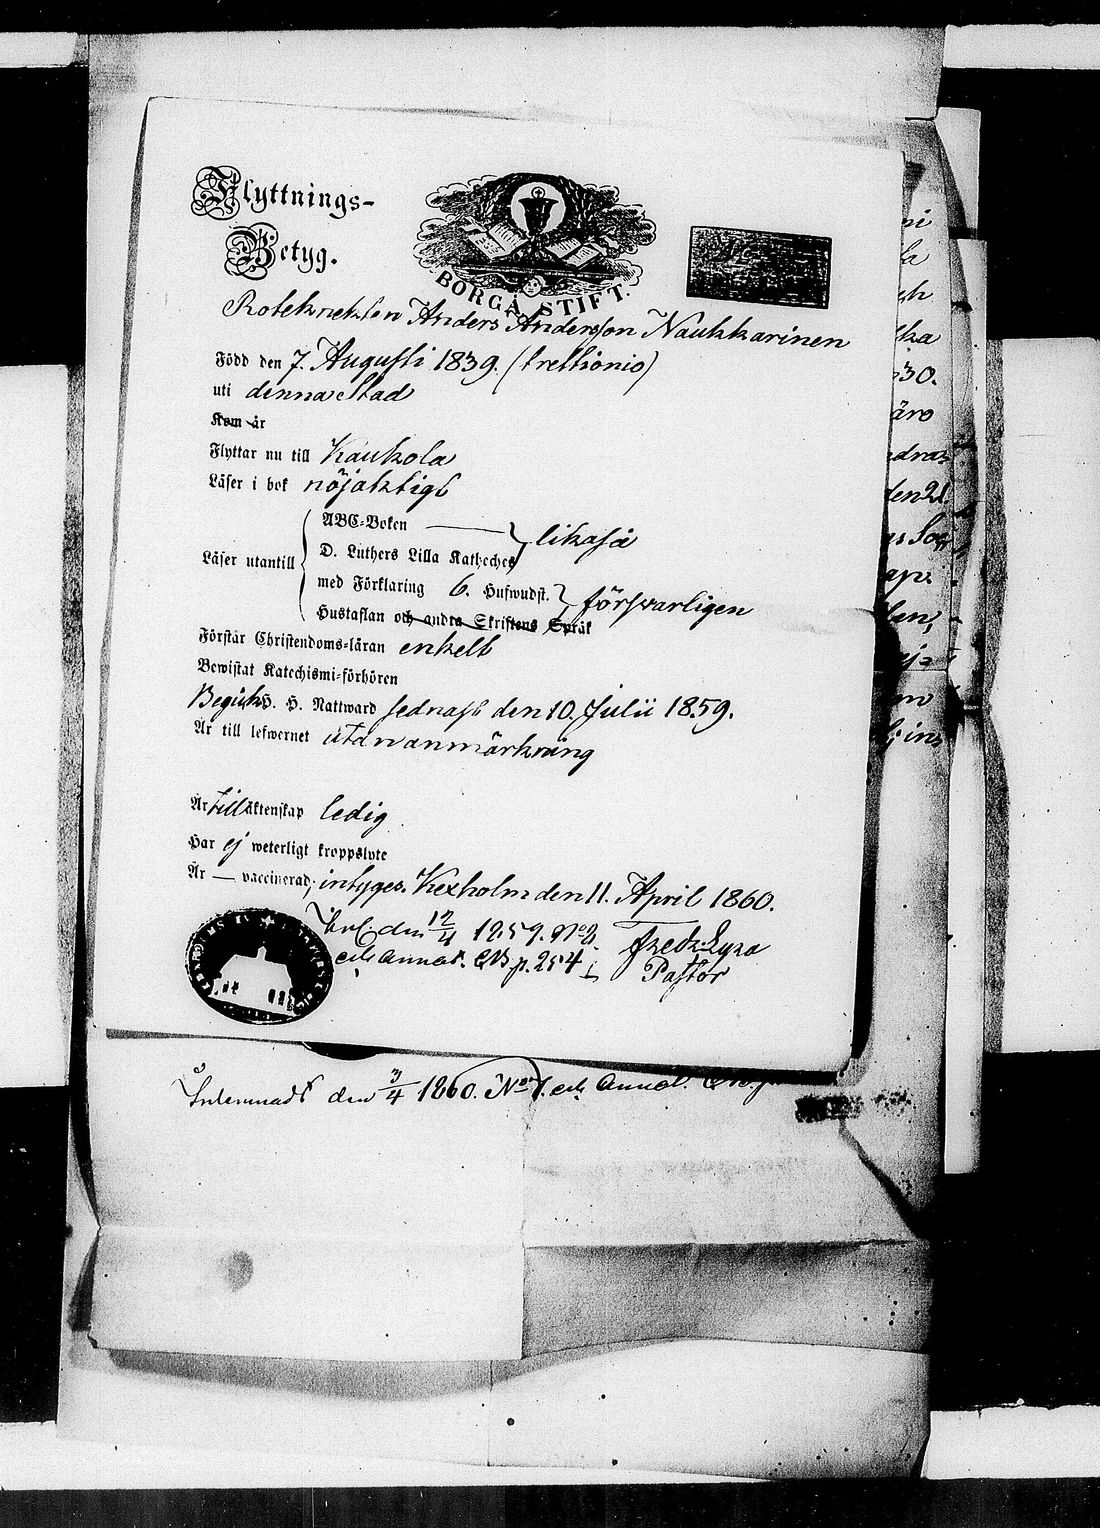 Flyttnings-
Betyg.
BORGÅ STIFT.
Roteknekten Anders Andersson Naukkarinen
Född den 7. Augusti 1839. (trettionio)
uti denna Stad
Kom år
Flyttar nu till Kaukola
Läser i bok nöjaktigt
Läser utantill
ABC-Boken
D. Luthers Lilla Katheches
likaså
med Förklaring 6. Hufwudst.
Hustaflan och andra Skriftens Språk
försvarligen
Förstår Christendoms-läran enkelt
Bewistat Katechismi-förhören
Begick H. H. Nattward sednast den 10. Julii 1859.
Är till lefwernet utan anmärkning
Är till äktenskap ledig
Har ej weterligt kroppslyte
Är — vaccinerad; intygas. Kexholm den 11. April 1860.
den 17/4 1859. No 8
Fredr. Lyra
och Annot. CB p. 254
Pastor
Inlemnadt den 3/4 1860. No 1. och Annot.
ni
la
ch
ka
30.
äro
den 21.